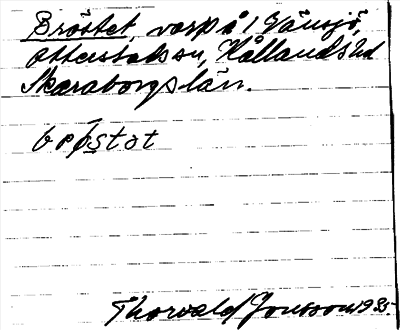 Bröstet, varp å l Vänsjö,
Otterstad sn, Kållands hd
Skaraborgs län.
brøstet
Thorvald Jonsson 1935.